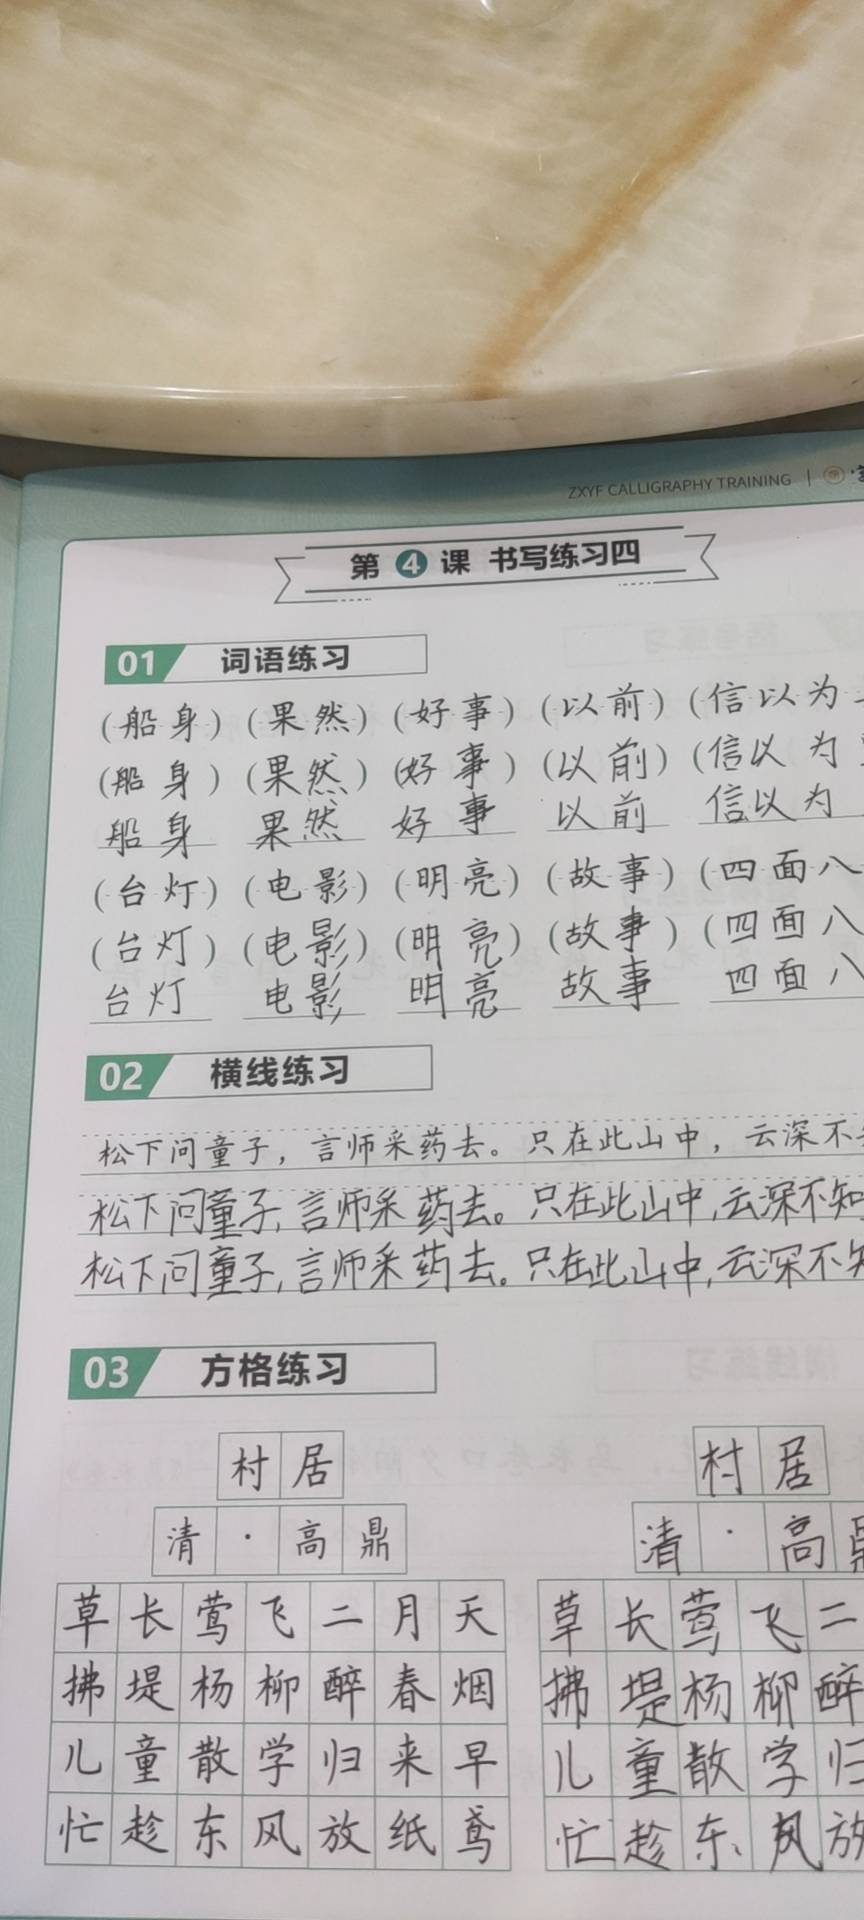 ZXYF CALLIGRAPHY TRAINING
第4课 书写练习四
01 词语练习
(船身)(果然)(好事)(以前)(信以为
(船身)(果然)(好事)(以前)(信以为
船身 果然 好事 以前 信以为
(台灯)(电影)(明亮)(故事)(四面八
(台灯)(电影)(明亮)(故事)(四面八
台灯 电影 明亮 故事 四面八
02 横线练习
松下问童子，言师采药去。只在此山中，云深不
松下问童子，言师采药去。只在此山中，云深不知
松下问童子，言师采药去。只在此山中，云深不知
03 方格练习
村居
清·高鼎
草长莺飞二月天
拂堤杨柳醉春烟
儿童散学归来早
忙趁东风放纸鸢
村居
清·高鼎
草长莺飞二
拂堤杨柳醉
儿童散学归
忙趁东风放